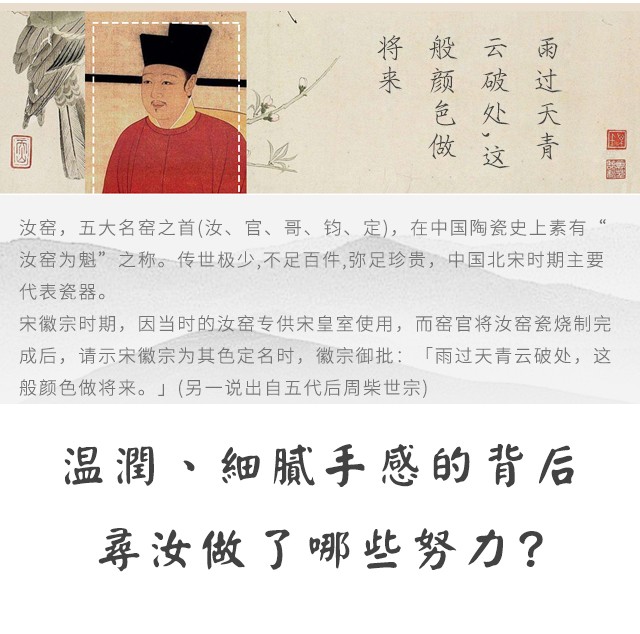 雨过天青
云破处、这
般颜色做
将来
汝窑，五大名窑之首(汝、官、哥、钧、定)，在中国陶瓷史上素有“
汝窑为魁”之称。传世极少,不足百件,弥足珍贵，中国北宋时期主要
代表瓷器。
宋徽宗时期，因当时的汝窑专供宋皇室使用，而窑官将汝窑瓷烧制完
成后，请示宋徽宗为其色定名时，徽宗御批：「雨过天青云破处，这
般颜色做将来。」(另一说出自五代后周柴世宗)
温潤、細膩手感的背后
尋汝做了哪些努力?